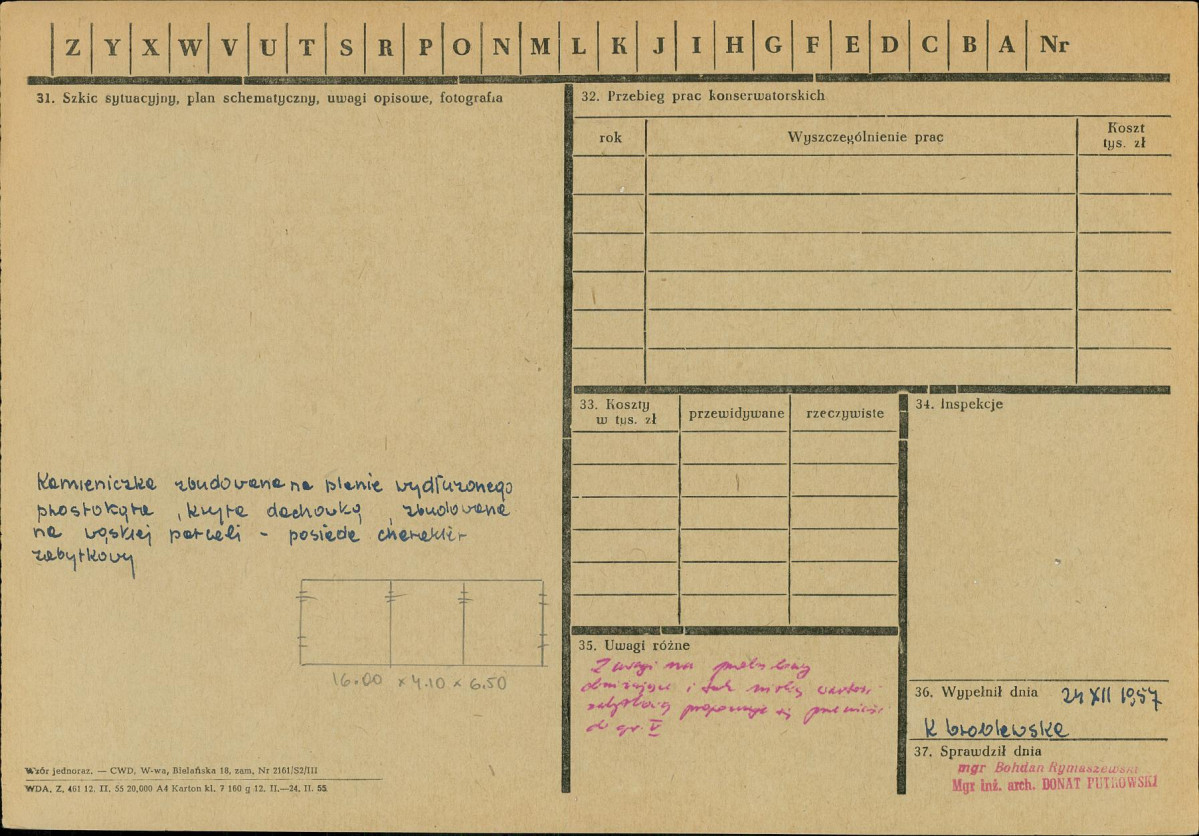 Z Y X W V U T S R P O N M L K J I H G F E D C B A Nr
31. Szkic sytuacyjny, plan schematyczny, uwagi opisowe, fotografia
Kamieniczka zbudowana na planie wydłużonego
prostokąta, kryta dachówką, zbudowana
na wąskiej parceli - posiada charakter
zabytkowy
16.00 x 4.10 x 6.50
Wzór jednoraz. — CWD, W-wa, Bielańska 18, zam. Nr 2161/S2/III
WDA. Z. 461 12. II. 55 20,000 A4 Karton kl. 7 160 g 12. II.—24. II. 55
32. Przebieg prac konserwatorskich
rok Wyszczególnienie prac Koszt
tys. zł
33. Koszty
w tys. zł przewidywane rzeczywiste
34. Inspekcje
35. Uwagi różne
Z uwagi na przebudowy
obniżające i tak niską wartość
zabytkową proponuje się przenieść
do gr. V
36. Wypełnił dnia 24 XII 1957
K Wróblewska
37. Sprawdził dnia
mgr Bohdan Rymaszewski
Mgr inż. arch. DONAT PUTKOWSKI